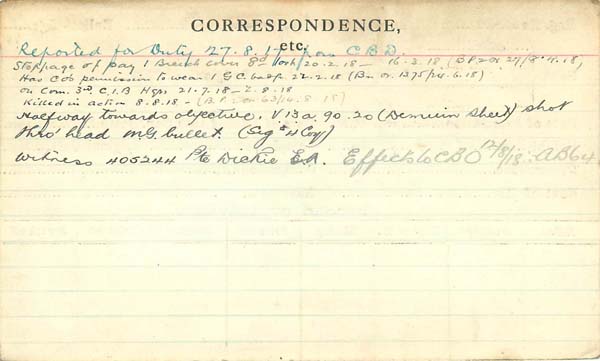 CORRESPONDENCE,
etc.
Reported for Duty 27.8.17 from C.B.D.
Stoppage of pay 1 Breech cover 8d 20.2.18 – 16.3.18
Has COs permission to wear 1 G.C. badge 22.2.18 (Bn or 1375/24.6.18)
on Com. 3rd C.I.B Hqrs 21.7.18 – 2.8.18
Killed in action 8.8.18 –
Halfway towards objective. V.13a.90.20 (Demuin Sheet) shot
thro' head M.G. bullet. (Sig "4 Coy)
Witness 405244 Pte Dickie E.A. Effects to CBO 12/8/18. AB64